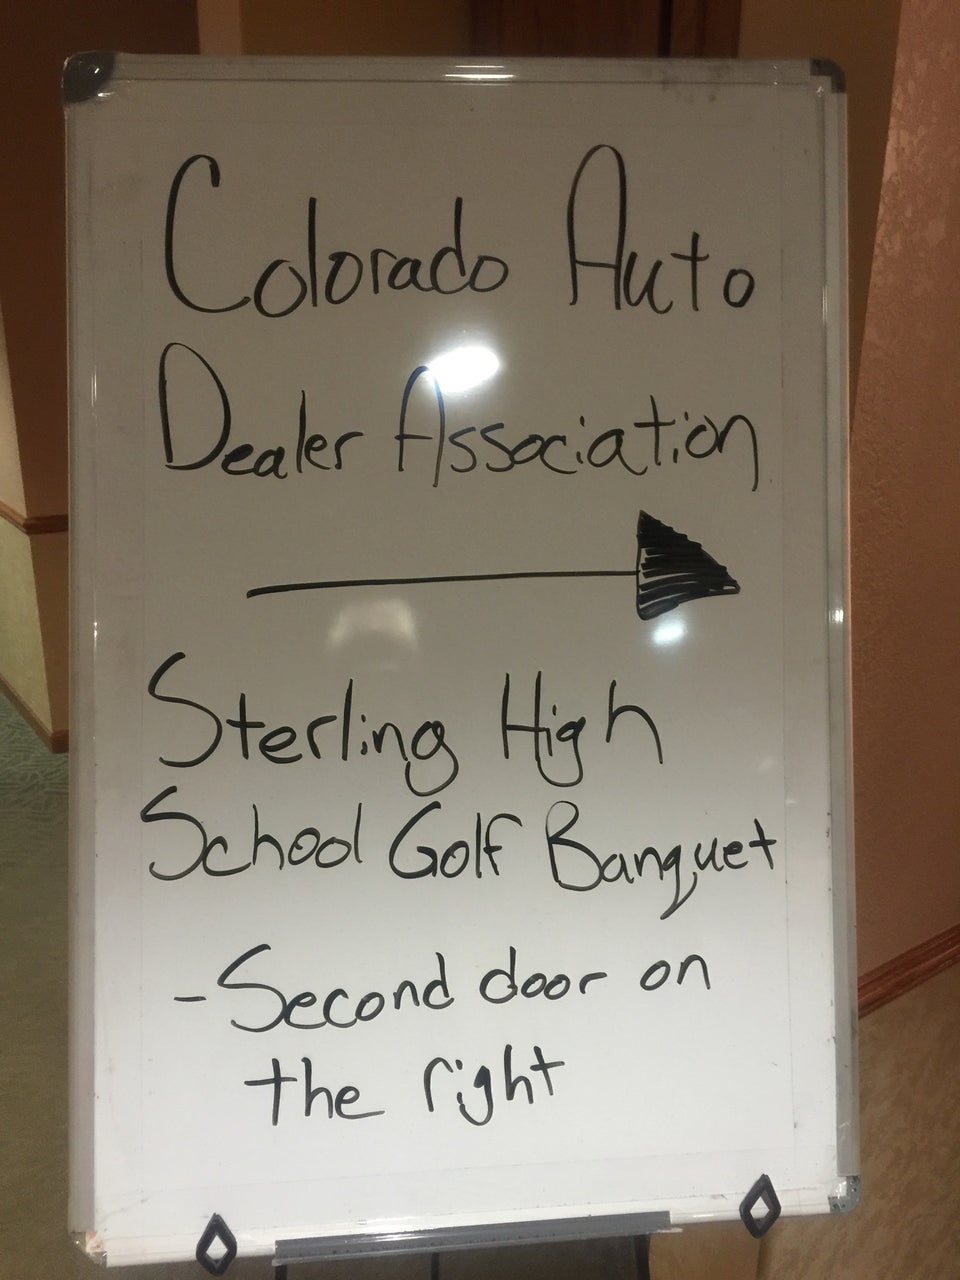 Colorado Auto
Dealer Association
Sterling High
School Golf Banquet
- Second door on
the right